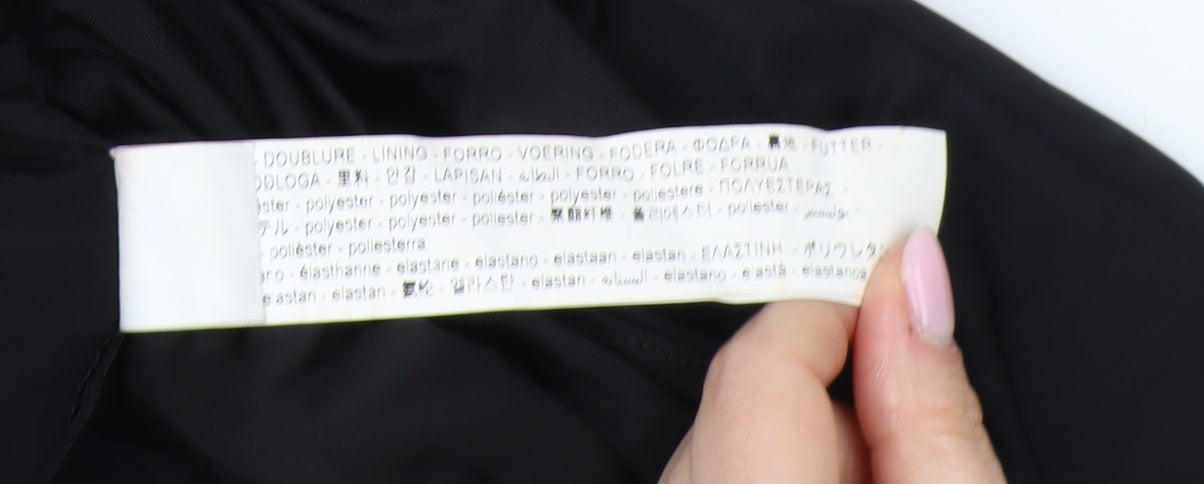 DOUBLURE - LINING - FORRO - VOERING - FODERA - ΦΟΔΡΑ - 裏地 - FUTTER -
- 里料 - 안감 - LAPISAN - البطانة - FORRO - FOLRE - FORRUA
- polyester - polyester - poliéster - polyester - poliestere - ΠΟΛΥΕΣΤΕΡΑΣ -
テル - polyester - polyester - poliester - 聚酯纤维 - 폴리에스터 - poliester - بوليستر -
poliéster - poliesterra
- élasthanne - elastane - elastano - elastaan - elastan - ΕΛΑΣΤΙΝΗ - ポリウレタ
elastan - elastan - 氨纶 - 엘라스탄 - elastan - - elastano - elastà - elastanoa